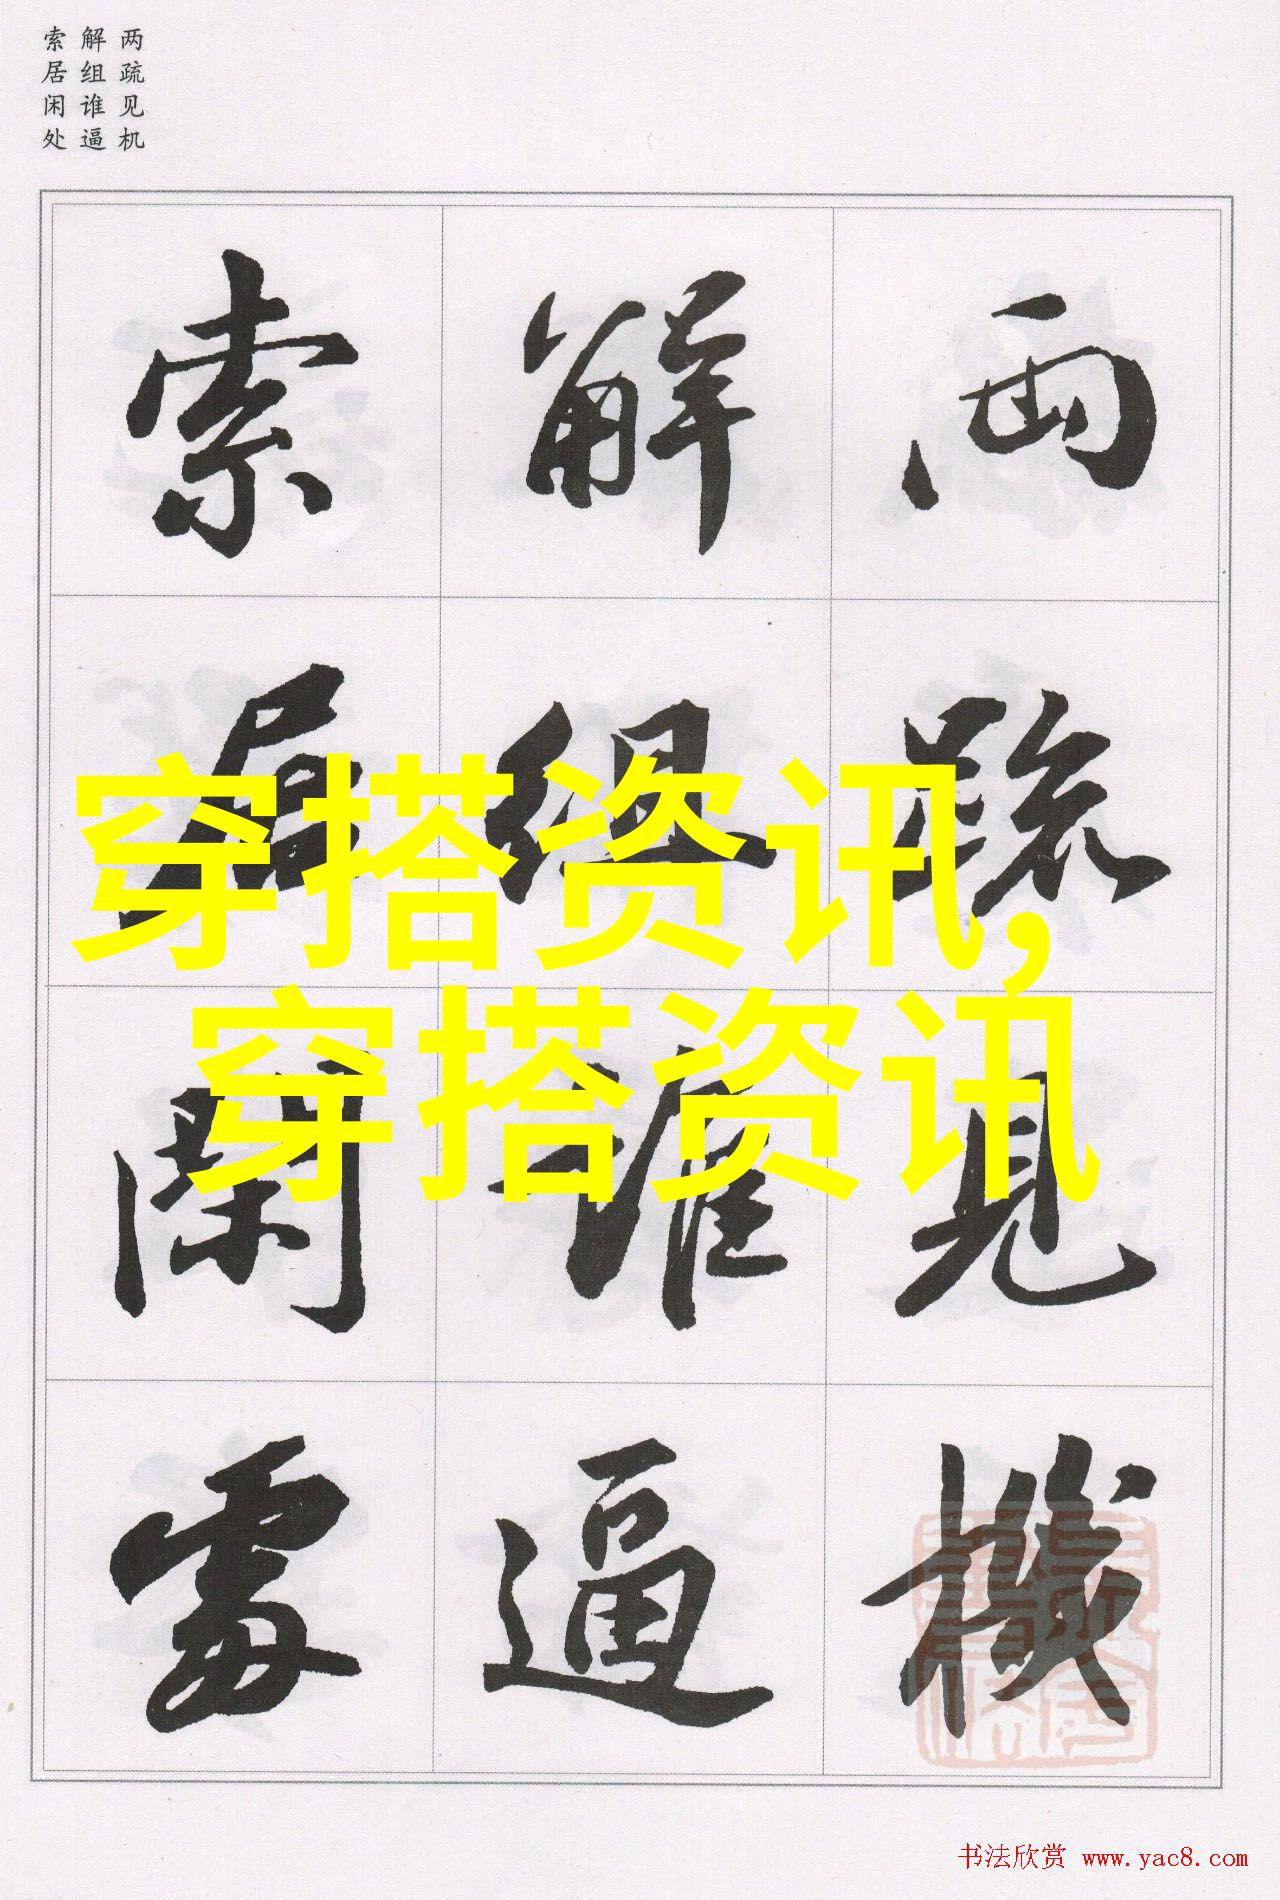 两疏见机
解组谁逼
索居闲处
兩疏見機
解組誰逼
索居閑處
穿搭资讯,
穿搭资讯
书法欣赏 www.yac8.com